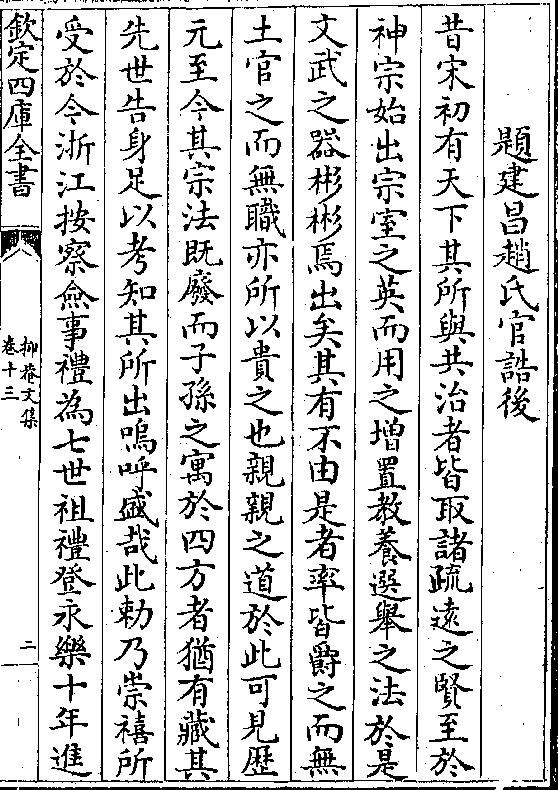 題建昌趙氏官誥後
昔宋初有天下其所與共治者皆取諸疏遠之賢至於
神宗始出宗室之英而用之增置教養選舉之法於是
文武之器彬彬焉出矣其有不由是者率皆爵之而無
土官之而無職亦所以貴之也親親之道於此可見歴
元至今其宗法既廢而子孫之寓於四方者猶有藏其
先世告身足以考知其所出嗚呼盛哉此勅乃崇禧所
受於今浙江按察僉事禮為七世祖禮登永樂十年進
欽定四庫全書
抑菴文集
卷十三
二